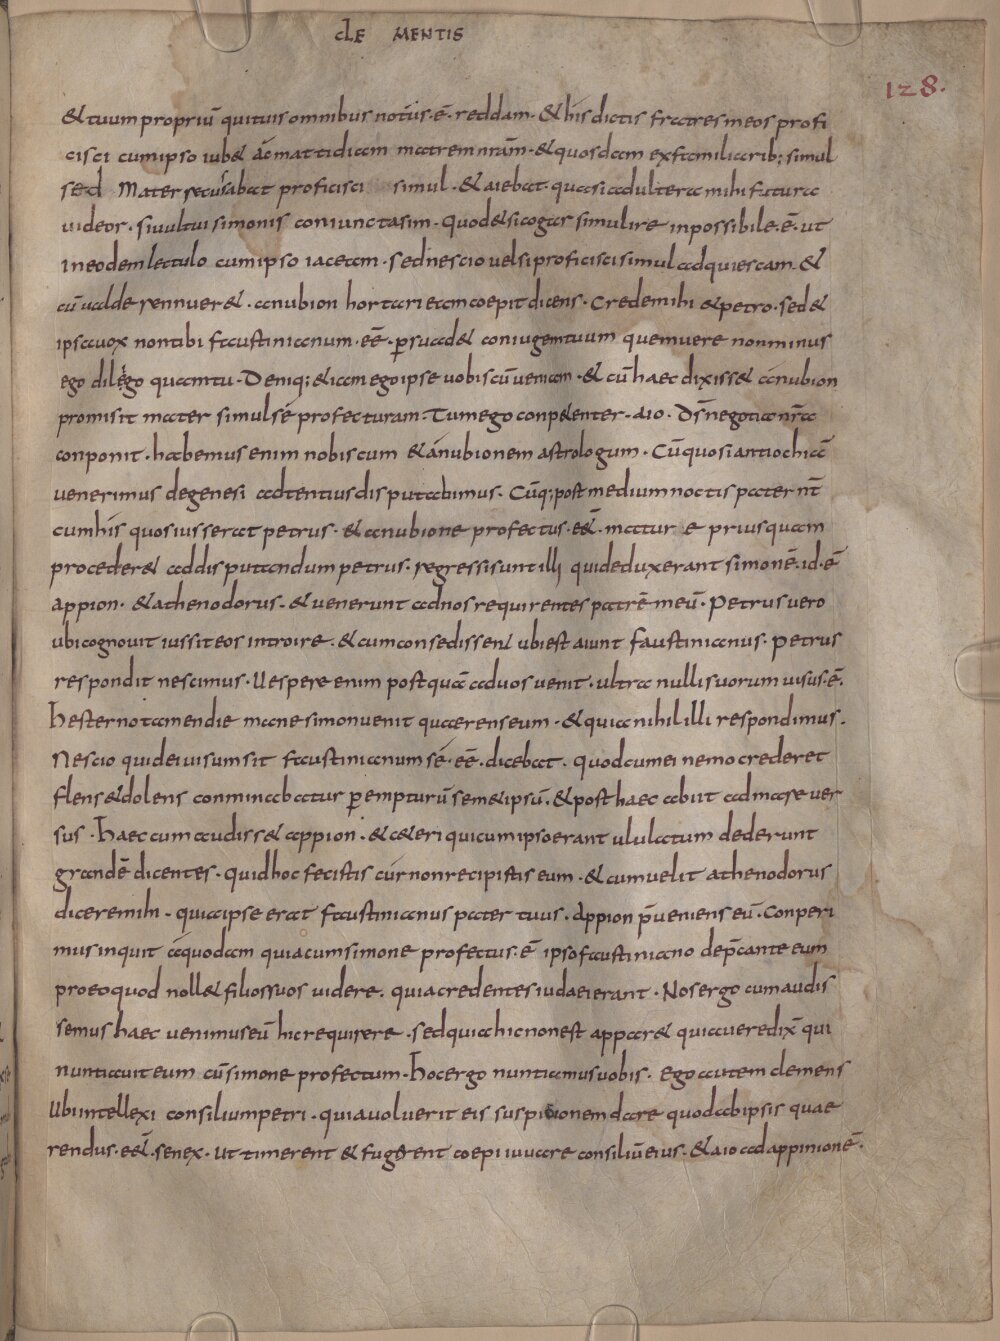 CLEMENTIS
128.
& tuum propriū qui tuis omnibus notus · ē · reddam · & his dictis fratres meos profi
cisci cum ipso iub& ac mattidiam matrem nrām · & quosdam ex familiarib; simul
sed Mater recusabat proficisci simul · & aiebat · quasi adultera mihi futura
uideor · si uultui simonis coniuncta sim · Quod & si cogar simul ire inpossibile · ē · ut
in eodem lectulo cum ipso iaceam · sed nescio uel si proficisci simul adquiescam · &
cū ualde rennuer& · anubion hortari eam coepit dicens · Crede mihi & petro · sed &
ipsa uox non tibi faustinianum · eē · psuad& coniugem tuum quem uere non minus
ego diligo quam tu · Deniq; & iam ego ipse uobiscū ueniam · & cū haec dixiss& anubion
promisit mater simul sé profecturam · Tum ego conpetenter · aio · D̄s negotia nr̄a
conponit · habemus enim nobiscum & anubionem astrologum · Cū quo si antiochiā
uenerimus de genesi adtentius disputabimus · Cūq; post medium noctis pater nr̄
cum his quos iusserat petrus · & anubione profectus · eēt · matur e priusquam
proceder& ad disputandum petrus · regressi sunt illi qui deduxerant simonē · id · ē
appion · & athenodorus · & uenerunt ad nos requirentes patrē meū · Petrus uero
ubi cognouit iussit eos introire · & cum consedissent ubi est aiunt faustinianus · Petrus
respondit nescimus · Uespere enim postquā ad uos uenit · ultra nulli suorum uisus · ē ·
Hesterno tamen die mane simon uenit quaerens eum · & quia nihil illi respondimus ·
Nescio quid ei uisum sit faustinianum sé · eē · dicebat · quod cum ei nemo crederet
flens & dolens conminabatur pempturū sem& ipsū · & post haec abiit ad mare uer
sus · Haec cum audiss& appion · & ceteri qui cum ipso erant ululatum dederunt
grandē dicentes · quid hoc fecistis cur non recipistis eum · & cum uelit athenodorus
dicere mihi · quia ipse erat faustinianus pater tuus · Appion p̄ueniens eū · Conperi
mus inquit a quodam quia cum simone profectus · ē ipso faustiniano dep̄cante eum
pro eo quod noll& filios suos uidere · quia credentes iudaei erant · Nos ergo cum audis
semus haec uenimus eū hic requirere · sed quia hic non est appar& quia uere dix̄ qui
nuntiauit eum cū simone profectum · Hoc ergo nuntiamus uobis · Ego autem clemens
Ubi intellexi consilium petri · quia uoluerit eis suspicionem dare quod ab ipsis quae
rendus · eēt · senex · Ut timerent & fugerent coepi iuuare consiliū eius · & aio ad appinionē ·